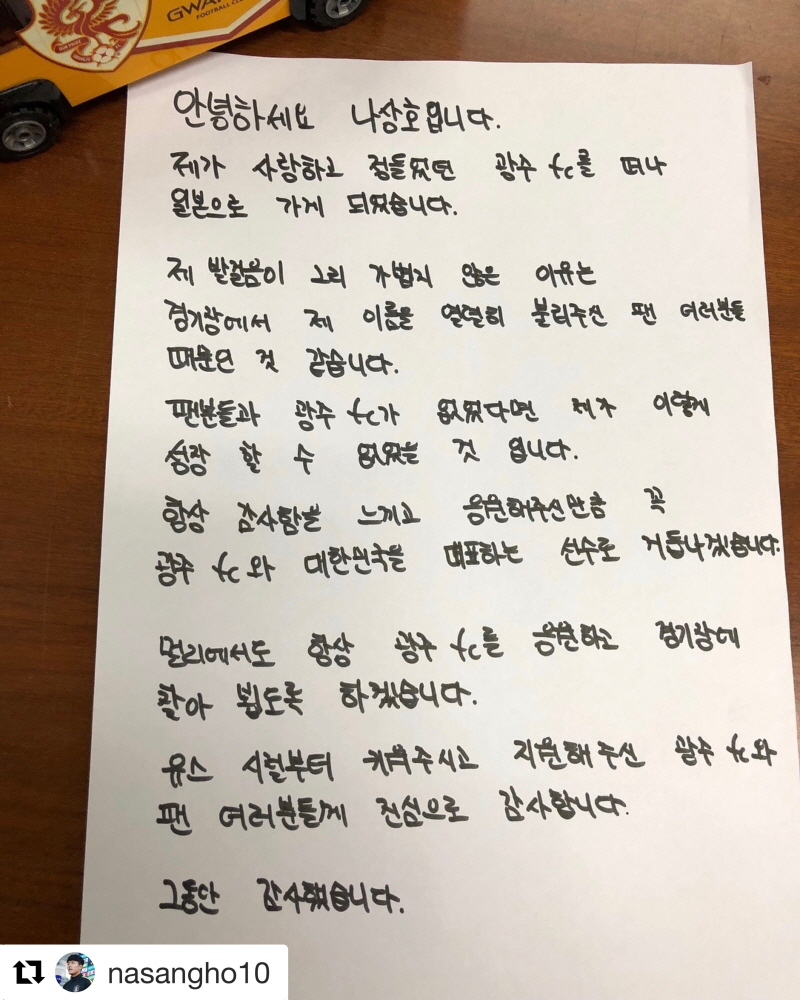 GWA
FOOTBALL CLU
안녕하세요 나상호입니다.
제가 사랑하고 정들었던 광주 fc를 떠나
일본으로 가게 되었습니다.
제 발걸음이 그리 가볍지 않은 이유는
경기장에서 제 이름을 열렬히 불러주신 팬 여러분들
때문인 것 같습니다.
팬분들과 광주 fc가 없었다면 제가 이렇게
성장 할 수 없었을 것 입니다.
항상 감사함을 느끼고 응원해주신만큼 꼭
광주 fc와 대한민국을 대표하는 선수로 거듭나겠습니다.
멀리에서도 항상 광주 fc를 응원하고 경기장에
찾아 뵙도록 하겠습니다.
유스 시절부터 키워주시고 지원해 주신 광주 fc와
팬 여러분들께 진심으로 감사합니다.
그동안 감사했습니다.
nasangho10